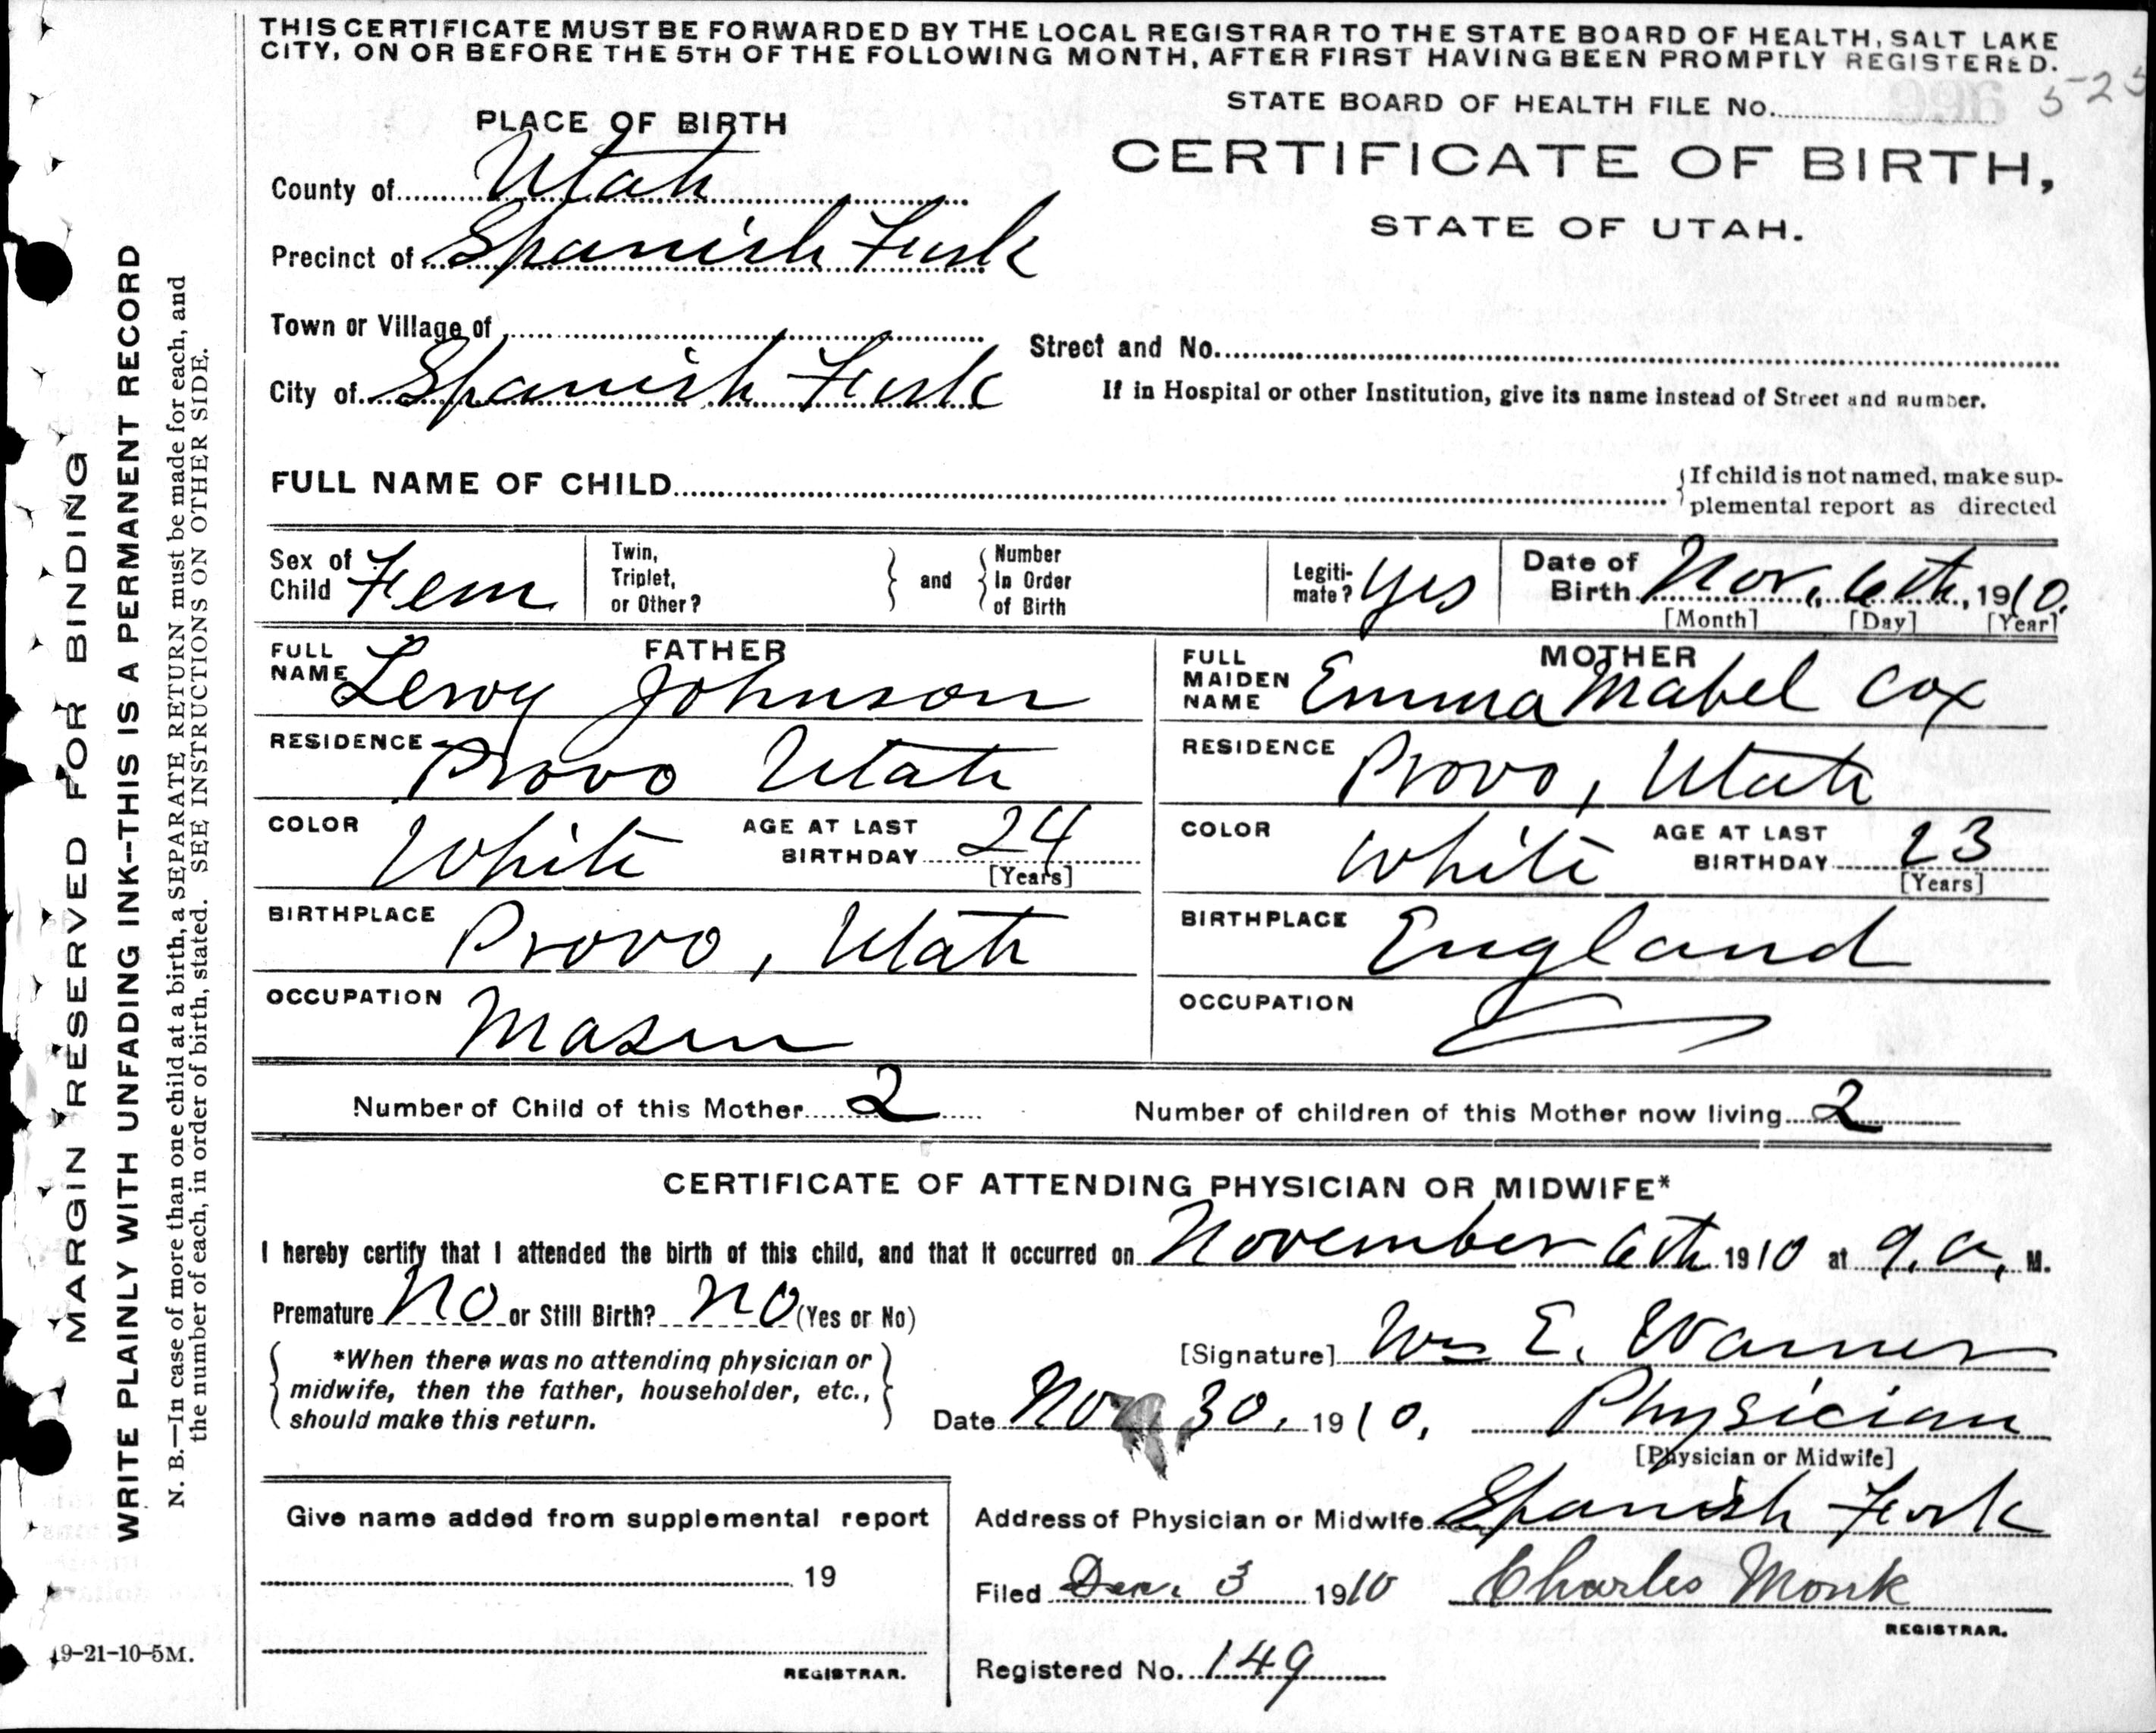 THIS CERTIFICATE MUST BE FORWARDED BY THE LOCAL REGISTRAR TO THE STATE BOARD OF HEALTH, SALT LAKE
CITY, ON OR BEFORE THE 5TH OF THE FOLLOWING MONTH, AFTER FIRST HAVING BEEN PROMPTLY REGISTERED.
STATE BOARD OF HEALTH FILE No.
PLACE OF BIRTH
CERTIFICATE OF BIRTH,
STATE OF UTAH.
County of Utah
Precinct of Spanish Fork
Town or Village of
Street and No.
City of Spanish Fork
If in Hospital or other Institution, give its name instead of Street and number.
FULL NAME OF CHILD
{If child is not named, make sup-
plemental report as directed
Sex of Child Fem
Twin, Triplet, or Other? } and { Number In Order of Birth
Legiti-mate? Yes
Date of Birth Nov. 6th, 1910.
[Month] [Day] [Year]
FATHER
FULL NAME Leroy Johnson
RESIDENCE Provo Utah
COLOR White AGE AT LAST BIRTHDAY 24
[Years]
BIRTHPLACE Provo, Utah
OCCUPATION Mason
MOTHER
FULL MAIDEN NAME Emma Mabel Cox
RESIDENCE Provo, Utah
COLOR White AGE AT LAST BIRTHDAY 23
[Years]
BIRTHPLACE England
OCCUPATION
Number of Child of this Mother 2 Number of children of this Mother now living 2
CERTIFICATE OF ATTENDING PHYSICIAN OR MIDWIFE*
I hereby certify that I attended the birth of this child, and that it occurred on November 6th 1910 at 9. a. M.
Premature No or Still Birth? No (Yes or No)
*When there was no attending physician or
midwife, then the father, householder, etc.,
should make this return.
[Signature] Wm E. Warner
Date Nov. 30, 1910, Physician
[Physician or Midwife]
Give name added from supplemental report
19
REGISTRAR.
Address of Physician or Midwife Spanish Fork
Filed Dec. 3 1910 Charles Monk
REGISTRAR.
Registered No. 149
9-21-10-5M.
MARGIN RESERVED FOR BINDING
WRITE PLAINLY WITH UNFADING INK--THIS IS A PERMANENT RECORD
N. B.—In case of more than one child at a birth, a SEPARATE RETURN must be made for each, and
the number of each, in order of birth, stated. SEE INSTRUCTIONS ON OTHER SIDE.